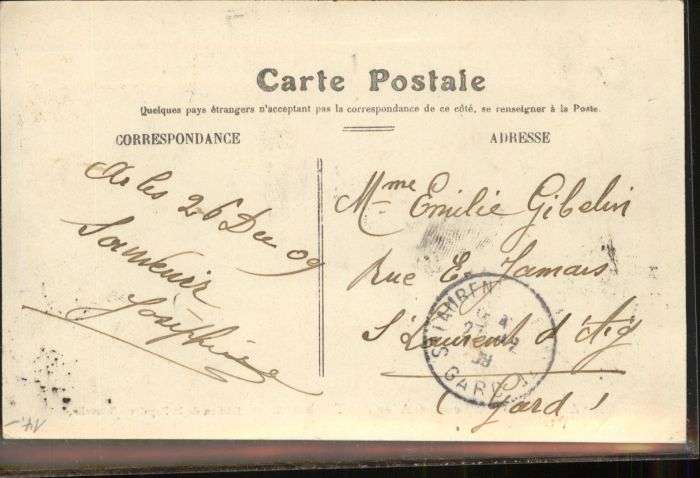 Carte Postale
Quelques pays étrangers n'acceptant pas la correspondance de ce côté, se renseigner à la Poste.
CORRESPONDANCE
Arles 26 Dec 09
Souvenir
Joséphine
ADRESSE
Mme Emilie Gibelin
Rue E. Jamais
St Laurent d'Aig
(Gard)
ST LAUREN
27
09
GARD
14.-